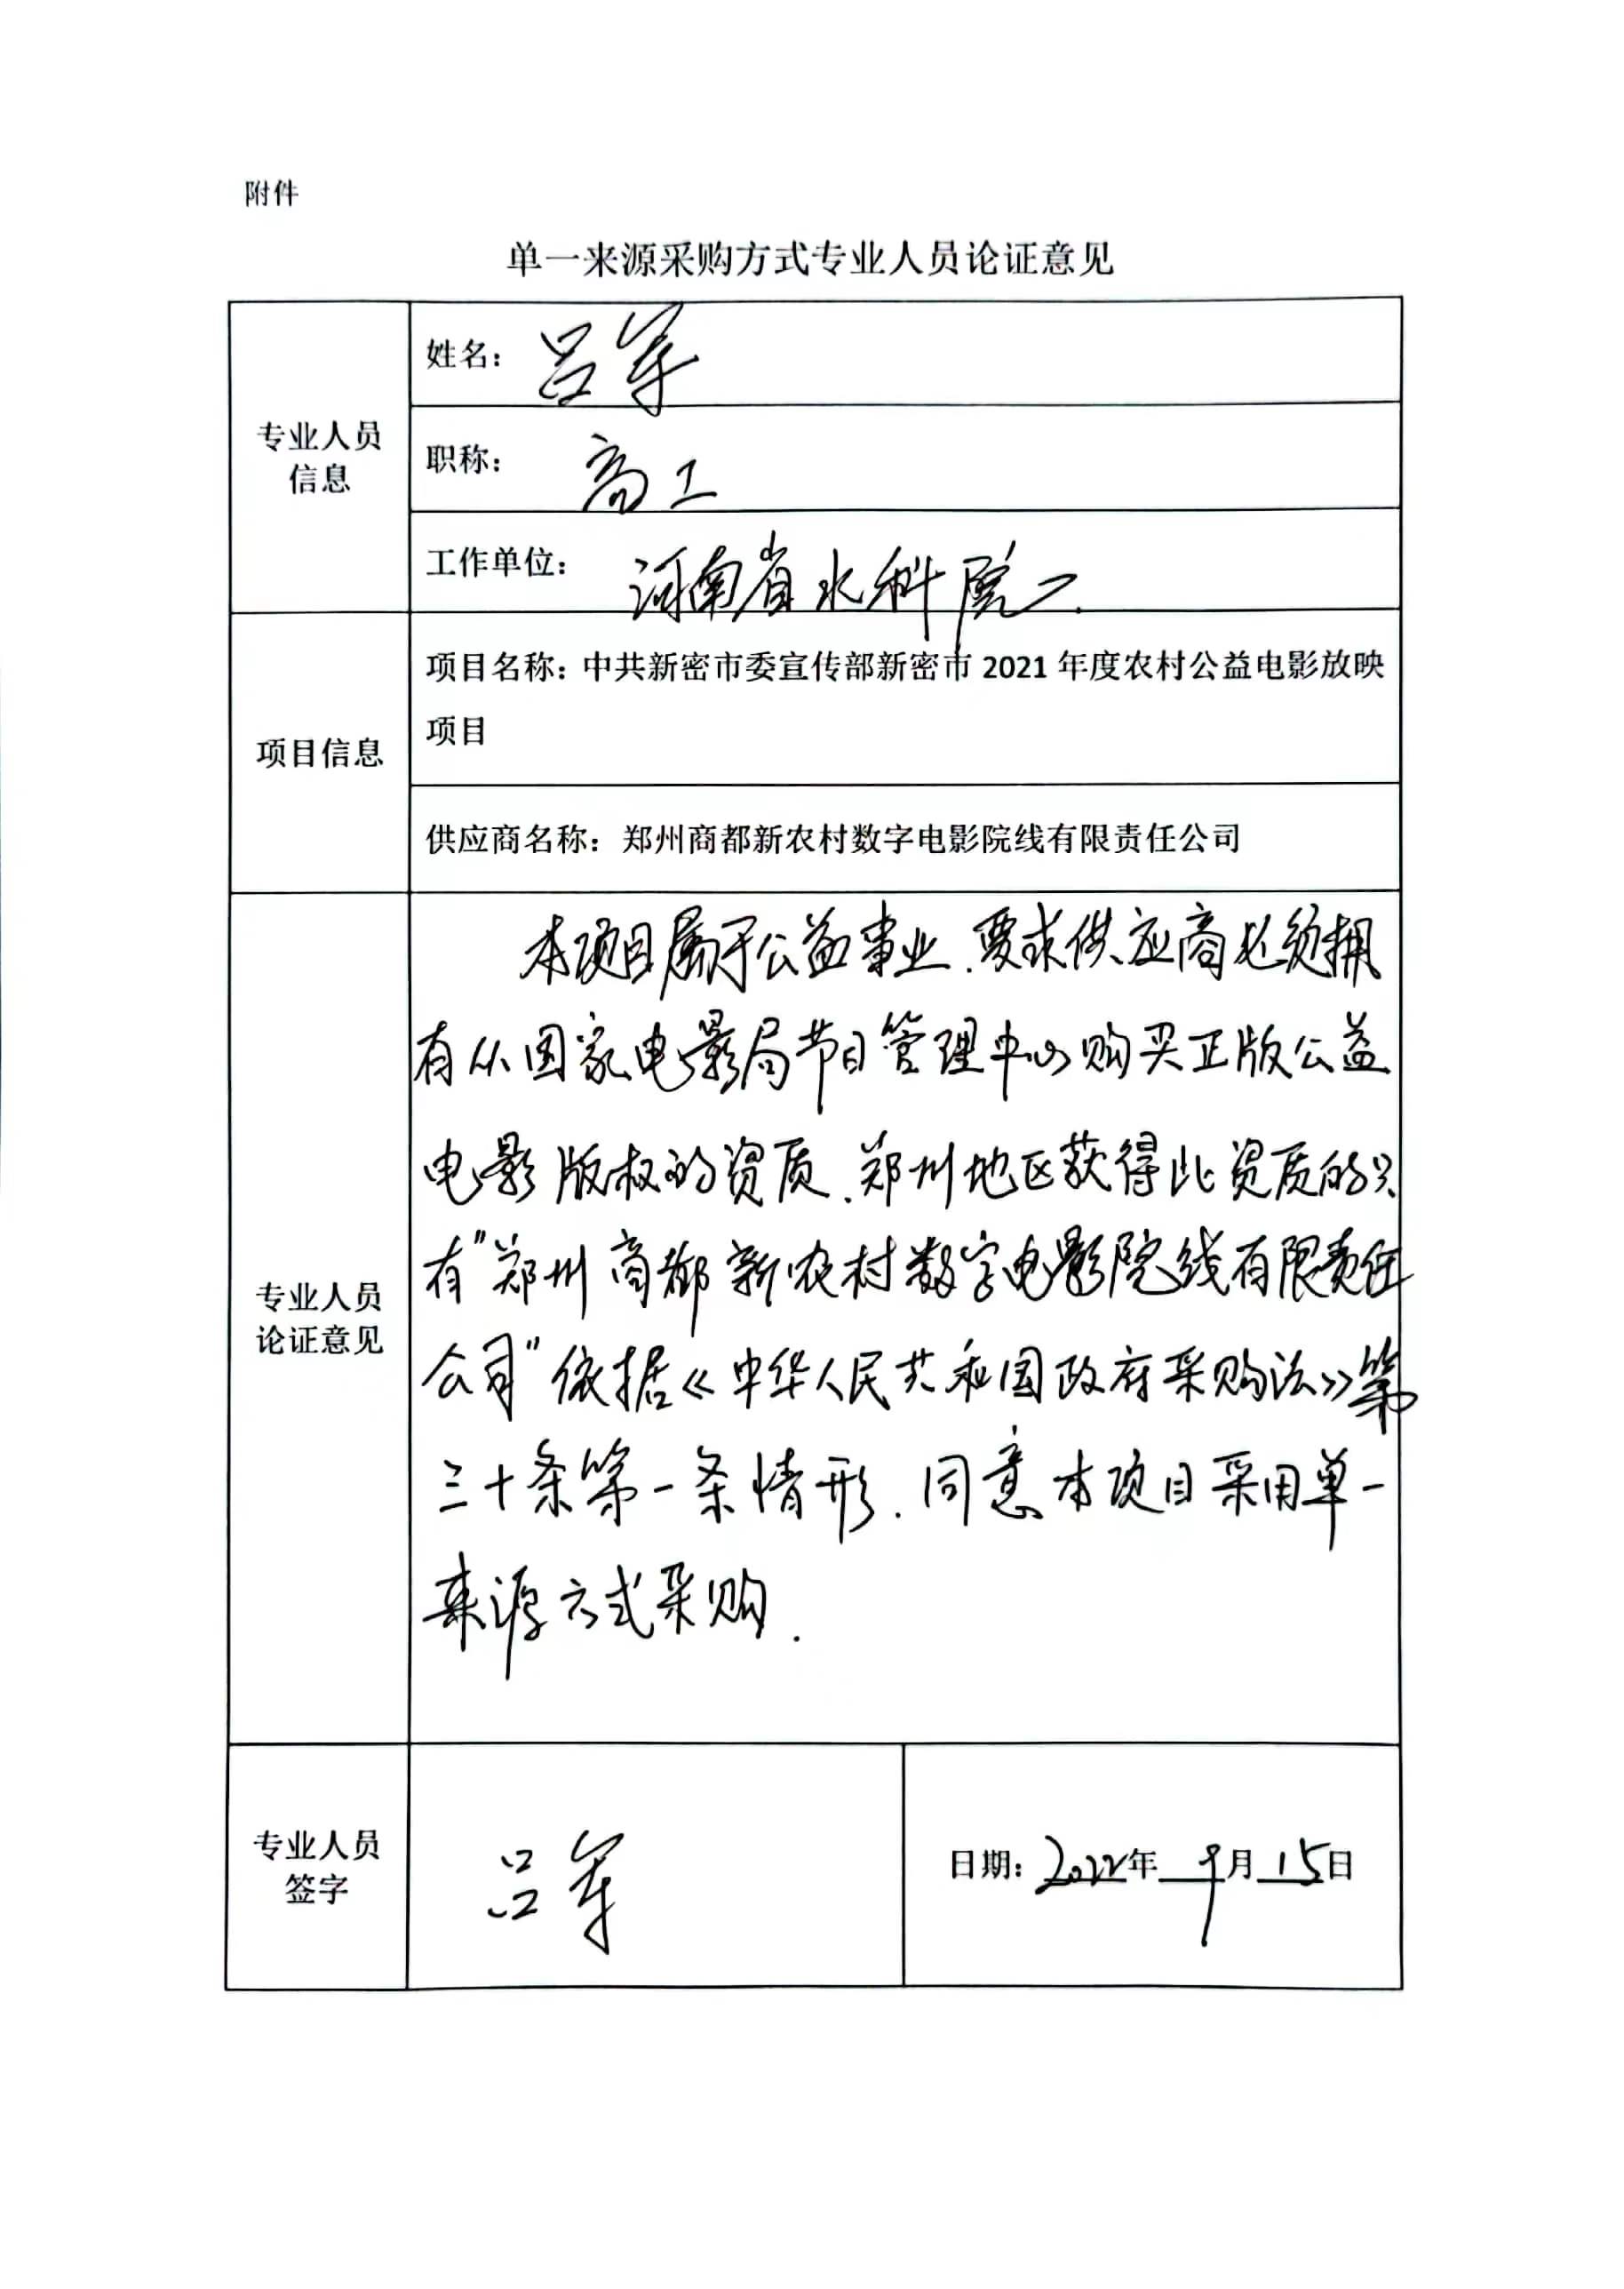 附件
单一来源采购方式专业人员论证意见
专业人员
信息
姓名：吕军
职称：高工
工作单位：河南省水科院
项目信息
项目名称：中共新密市委宣传部新密市 2021 年度农村公益电影放映
项目
供应商名称：郑州商都新农村数字电影院线有限责任公司
专业人员
论证意见
本项目属于公益事业.要求供应商必须拥
有从国家电影局节目管理中心购买正版公益
电影版权的资质.郑州地区获得此资质的只
有"郑州商都新农村数字电影院线有限责任
公司"依据《中华人民共和国政府采购法》第
三十条第一条情形.同意本项目采用单一
来源方式采购.
专业人员
签字
吕军
日期：2022年 9月 15日